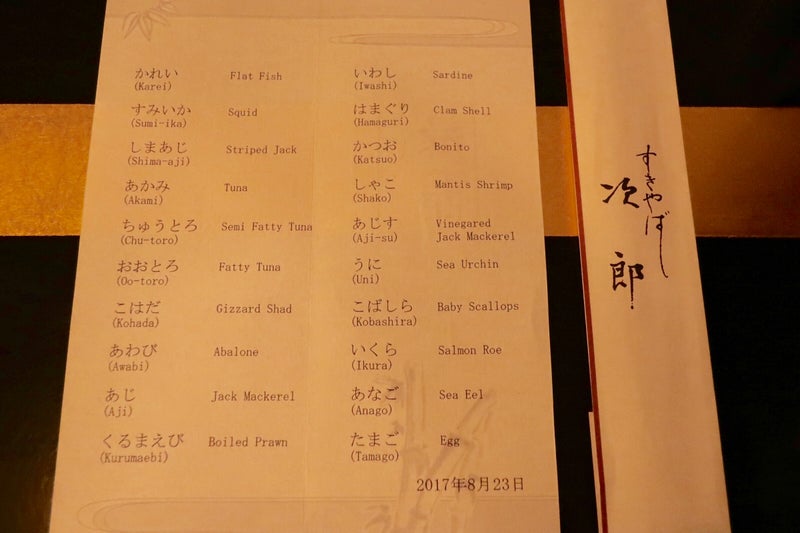 かれい Flat Fish
(Karei)
すみいか Squid
(Sumi-ika)
しまあじ Striped Jack
(Shima-aji)
あかみ Tuna
(Akami)
ちゅうとろ Semi Fatty Tuna
(Chu-toro)
おおとろ Fatty Tuna
(Oo-toro)
こはだ Gizzard Shad
(Kohada)
あわび Abalone
(Awabi)
あじ Jack Mackerel
(Aji)
くるまえび Boiled Prawn
(Kurumaebi)
いわし Sardine
(Iwashi)
はまぐり Clam Shell
(Hamaguri)
かつお Bonito
(Katsuo)
しゃこ Mantis Shrimp
(Shako)
あじす Vinegared
(Aji-su) Jack Mackerel
うに Sea Urchin
(Uni)
こばしら Baby Scallops
(Kobashira)
いくら Salmon Roe
(Ikura)
あなご Sea Eel
(Anago)
たまご Egg
(Tamago)
2017年8月23日
すきやばし
次郎